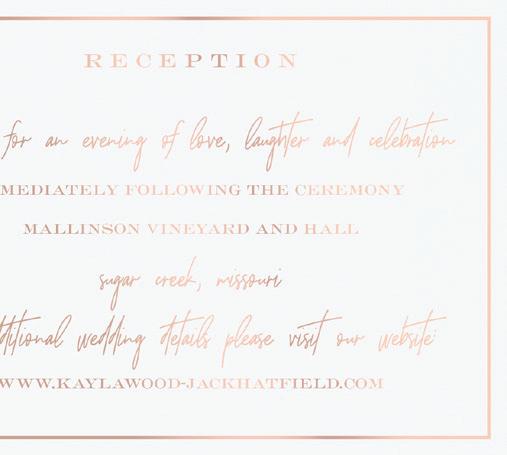 RECEPTION
for an evening of love, laughter and celebration
MEDIATELY FOLLOWING THE CEREMONY
MALLINSON VINEYARD AND HALL
sugar creek, missouri
ditional wedding details please visit our website:
WWW.KAYLAWOOD-JACKHATFIELD.COM